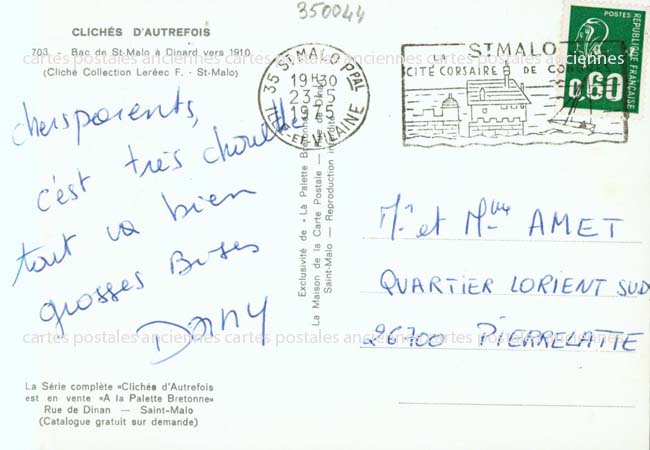 350044
CLICHÉS D'AUTREFOIS
703. - Bac de St-Malo à Dinard vers 1910
cartes postales anciennes cartes postales anciennes
(Cliché Collection Leréec F. - St-Malo)
35 ST MALO PPAL
19H30
23-5
1975
ILLE-ET-VILAINE
ST MALO
LA
CITÉ CORSAIRE DE
POSTES
REPUBLIQUE FRANÇAISE
0,60
chers parents,
c'est très chouette
tout va bien
grosses Bises
Dany
cartes postales anciennes cartes postales anciennes
cartes postales anciennes cartes postales anciennes
Exclusivité de « La Palette Bretonne »
La Maison de la Carte Postale — Rue de Dinan
Saint-Malo — Reproduction interdite
Mr et Mme AMET
QUARTIER LORIENT SUD
26700 PIERRELATTE
La Série complète «Clichés d'Autrefois
est en vente «A la Palette Bretonne»
Rue de Dinan — Saint-Malo
(Catalogue gratuit sur demande)